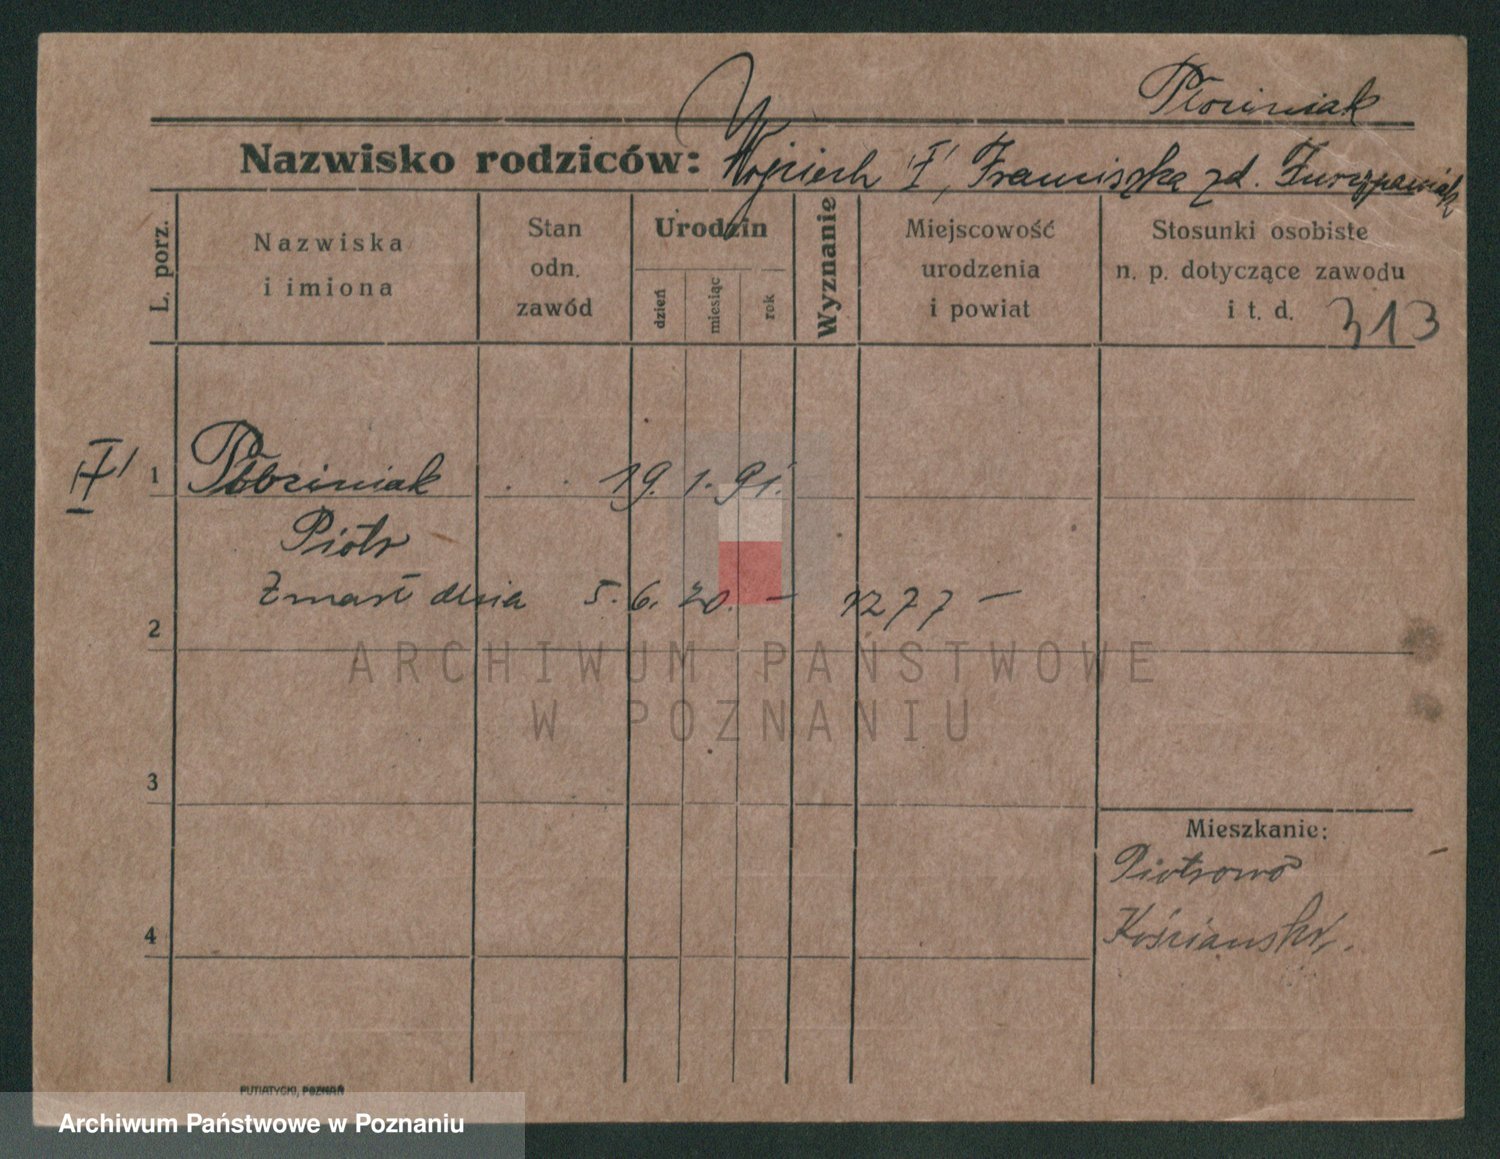 Płociniak
Nazwisko rodziców: Wojciech '†', Franciszka zd.
L. porz.
Nazwiska
i imiona
Stan
odn.
zawód
Urodzin
dzień
miesiąc
rok
Wyznanie
Miejscowość
urodzenia
i powiat
Stosunki osobiste
n. p. dotyczące zawodu
i t. d. 313
'†' 1 Płociniak . . 19. 1. 91.
Piotr
Zmarł dnia 5. 6. 20. — 1277 —
2
ARCHIWUM PAŃSTWOWE
W POZNANIU
3
Mieszkanie:
Piotrowo
Kościański.
4
PUTIATYCKI, POZNAŃ
Archiwum Państwowe w Poznaniu